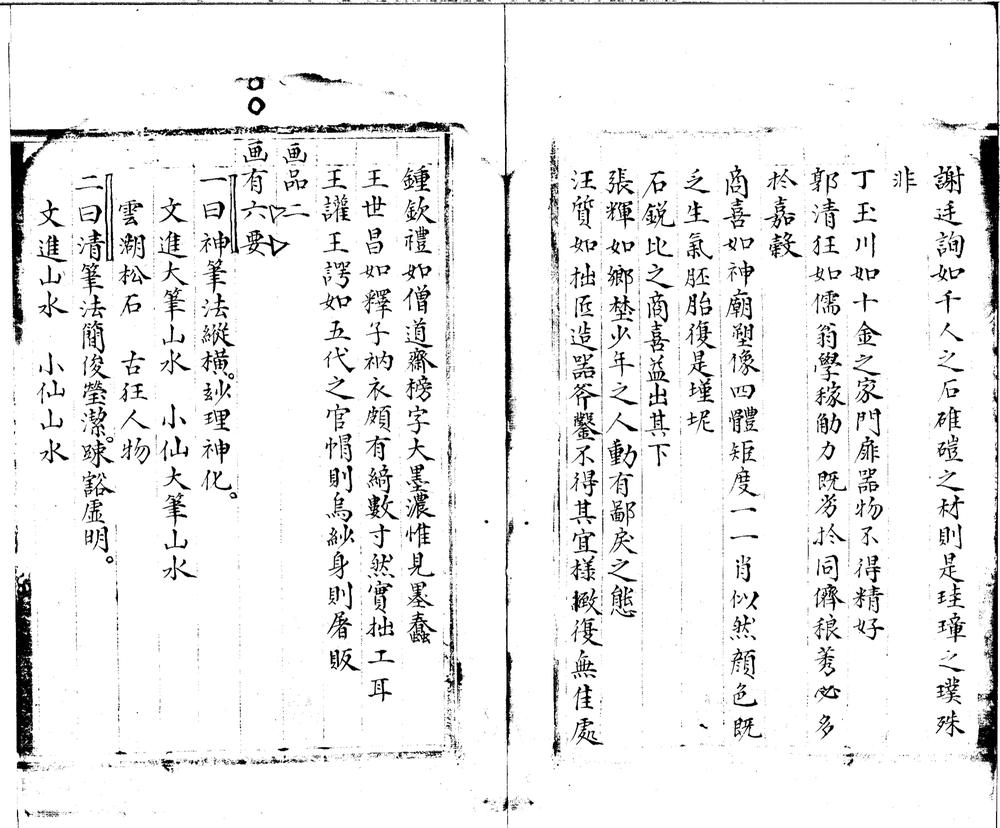 謝廷詢如千人之石碓磑之材則是珪璋之璞殊
非
丁玉川如十金之家門扉器物不得精好
郭清狂如儒翁學稼觔力既劣扵同儕稂莠必多
扵嘉糓
商喜如神廟塑像四體矩度一一肖似然顔色既
乏生氣胚胎復是墐坭
石鋭比之商喜益出其下
張輝如鄉埜少年之人動有鄙戾之態
汪質如拙匠造器斧鑿不得其宜様緻復無佳處
鍾欽禮如僧道齋榜字大墨濃惟見墨蠢
王世昌如釋子衲衣頗有綺數寸然實拙工耳
王讙王諤如五代之官帽則烏紗身則屠販
画品二
画有六要
一曰神筆法縱橫。玅理神化。
文進大筆山水 小仙大筆山水
雲湖松石 古狂人物
二曰清筆法簡俊瑩潔。踈豁虛明。
文進山水 小仙山水